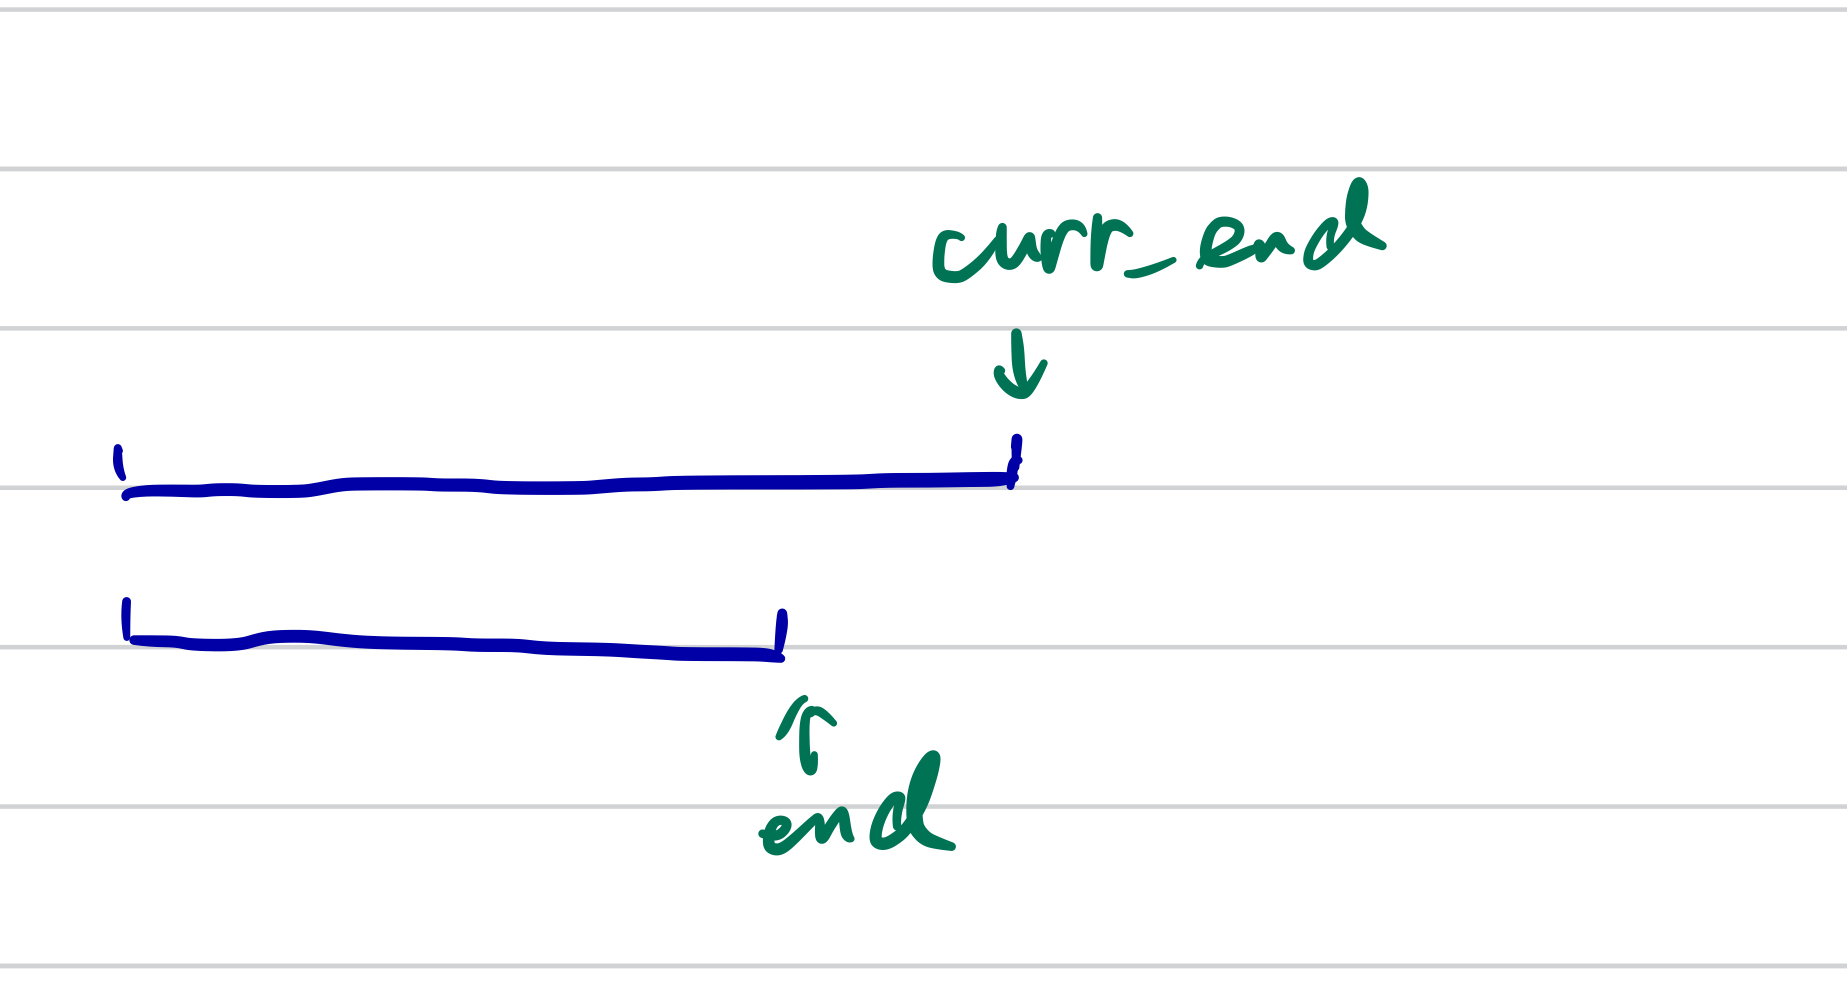 curr_end
end